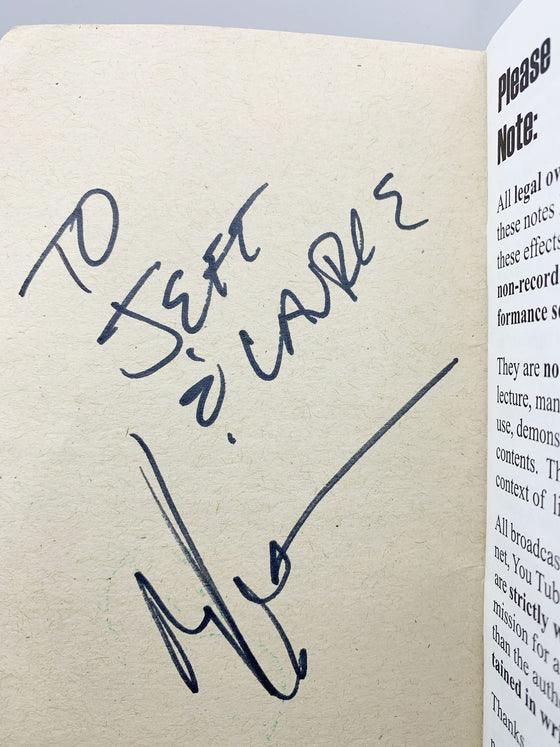 TO
JEFF
& CARRIE
Please
Note:
All legal ow
these notes
these effects
non-record
formance se
They are no
lecture, man
use, demons
contents. Th
context of li
All broadcas
net, You Tub
are strictly w
mission for a
than the auth
tained in wri
Thanks